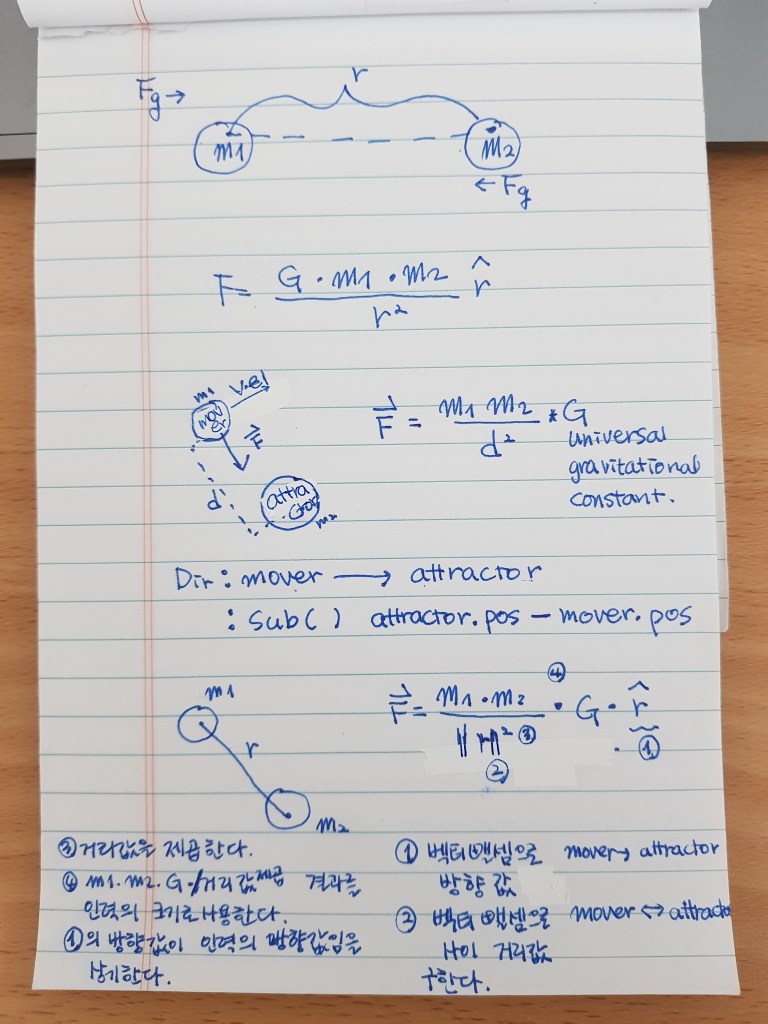 r
Fg →
m1
m2
← Fg
F = G · m1 · m2 / r² r̂
m1
vel
mov
er
F⃗
d
attra
ctor
m2
F⃗ = m1 m2 / d² * G
universal
gravitational
constant.
Dir : mover → attractor
: sub( ) attractor.pos − mover.pos
m1
r
m2
F⃗ = m1 · m2 / ‖r‖² · G · r̂
④
③
②
①
③ 거리값을 제곱한다.
④ m1. m2. G·/거리값제곱 결과를
인력의 크기로 사용한다.
①의 방향값이 인력의 방향값임을
상기한다.
① 벡터뺄셈으로 mover → attractor
방향 값
② 벡터뺄셈으로 mover ↔ attracto
사이 거리값
구한다.